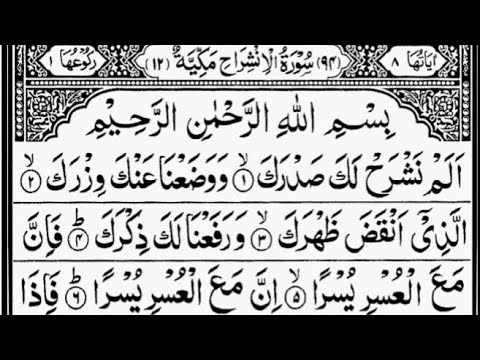 اٰیَاتُهَا ٨ (٩٤) سُوْرَةُ الْاِنْشِرَاحِ مَكِّيَّةٌ (١٢) رُكُوْعُهَا ١
بِسْمِ اللّٰهِ الرَّحْمٰنِ الرَّحِيْمِ
اَلَمْ نَشْرَحْ لَكَ صَدْرَكَ ۙ‏﴿١﴾ وَوَضَعْنَا عَنْكَ وِزْرَكَ ۙ‏﴿٢﴾
الَّذِیْۤ اَنْقَضَ ظَهْرَكَ ۙ‏﴿٣﴾ وَرَفَعْنَا لَكَ ذِكْرَكَ ؕ‏﴿٤﴾ فَاِنَّ
مَعَ الْعُسْرِ یُسْرًا ۙ‏﴿٥﴾ اِنَّ مَعَ الْعُسْرِ یُسْرًا ؕ‏﴿٦﴾ فَاِذَا